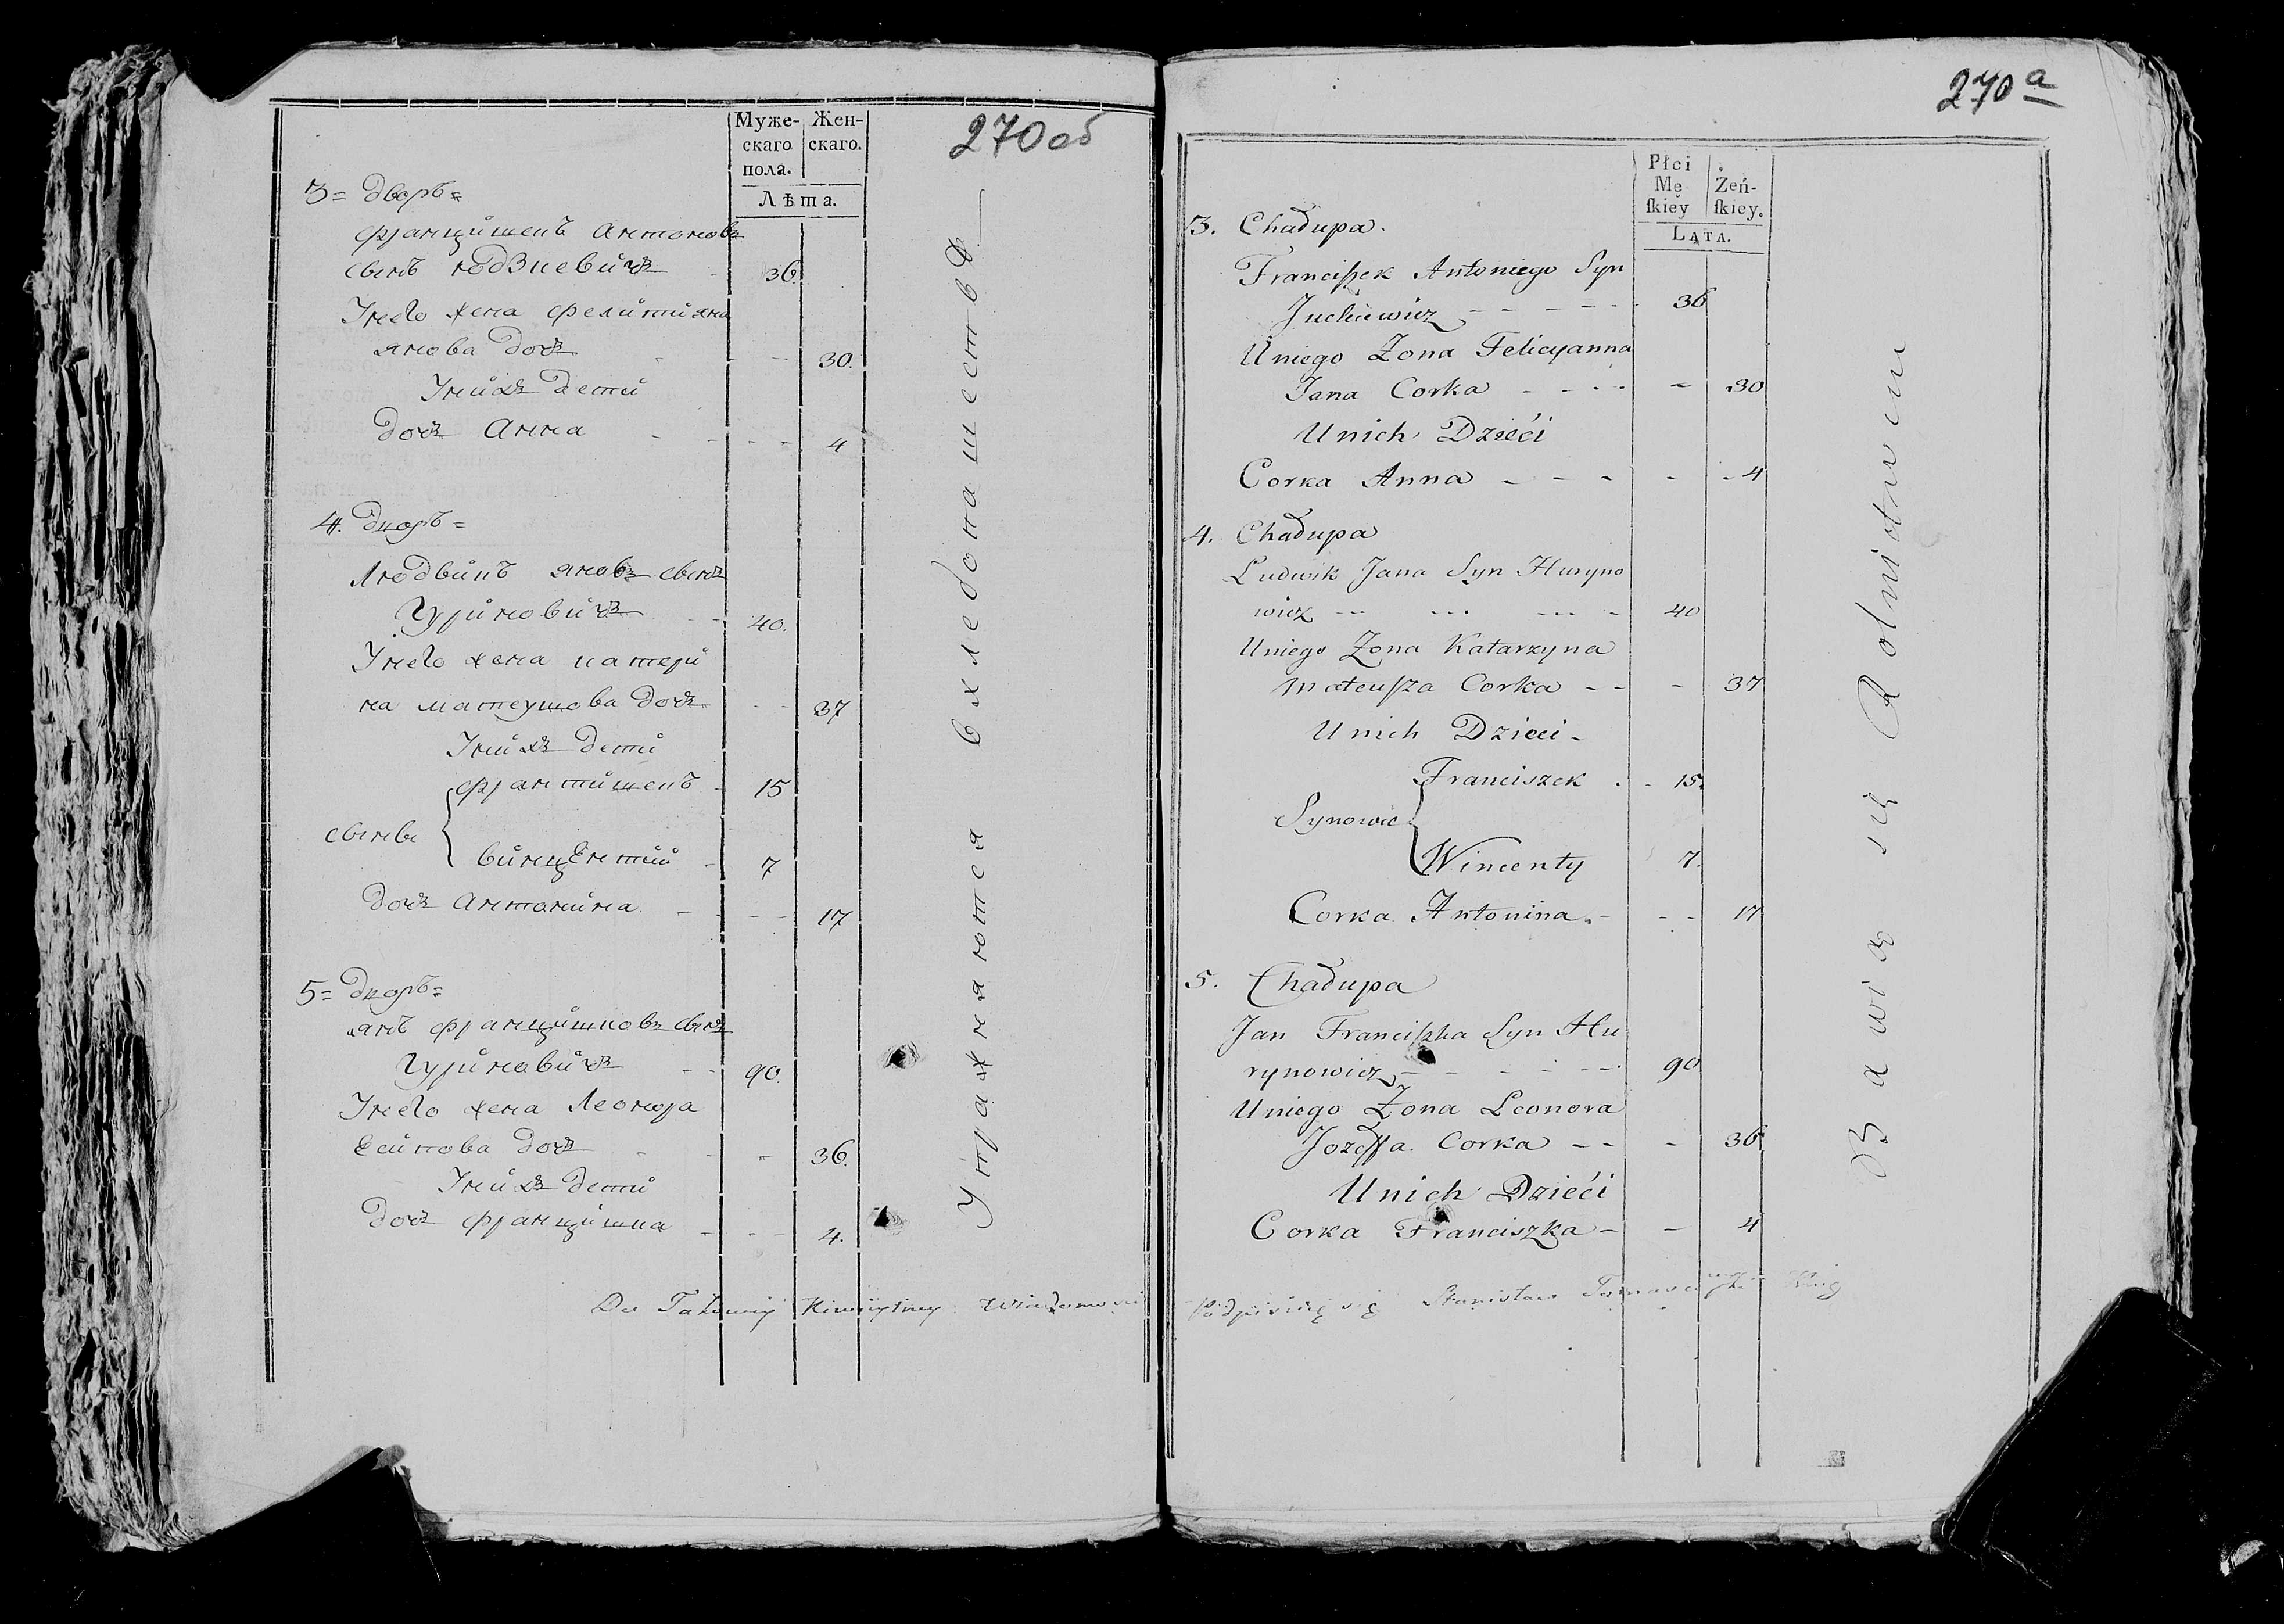 270об
Муже-
скаго
пола.
Жен-
скаго.
Лѣта.
3= Дворъ=
Францишекъ Антоновъ
сынъ 36.
Унего жена Фелициянна
янова дочь 30.
Унихъ дети
дочь Анна 4
4. Дворъ=
Людвикъ яновъ сынъ
Гуриновичъ 40.
Унего жена катери
на матеушова дочь 37
Унихъ дети
сынове
Франтишекъ 15
винцентий 7
дочь Антонина 17
5= Дворъ=
янъ Францишковъ сынъ
Гуриновичъ 90.
Унего жена Леонора
Есипова дочь 36.
Унихъ дети
дочь Францишка 4.
Упражняются вхлебопашествѣ.
Do Takowey Wiadomosci
270 а
Płci
Mę
ſkiey
Żeń-
ſkiey.
LATA.
3. Chałupa.
Franciſzek Antoniego Syn
Juckiewicz 36
Uniego Zona Felicyanna
Jana Corka 30
Unich Dzieći
Corka Anna 4
4. Chałupa
Ludwik Jana Syn Huryno
wicz 40
Uniego Zona Katarzyna
Mateuſza Corka 37
Unich Dzieci
Synowie
Franciszek 15.
Wincenty 7.
Corka Antonina 17
5. Chałupa
Jan Franciſzka Syn Hu
rynowicz 90
Uniego Zona Leonora
Jozeffa Corka 36
Unich Dzieći
Corka Franciszka 4
Bawią się Rolnictwem
Podpisuię się Stanisław